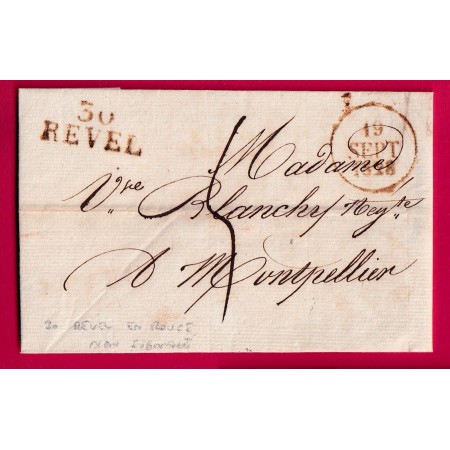 30
REVEL
19
SEPT
1828
5
Madame
Vve Blanche Negte
A Montpellier
30 REVEL EN ROUGE
NON